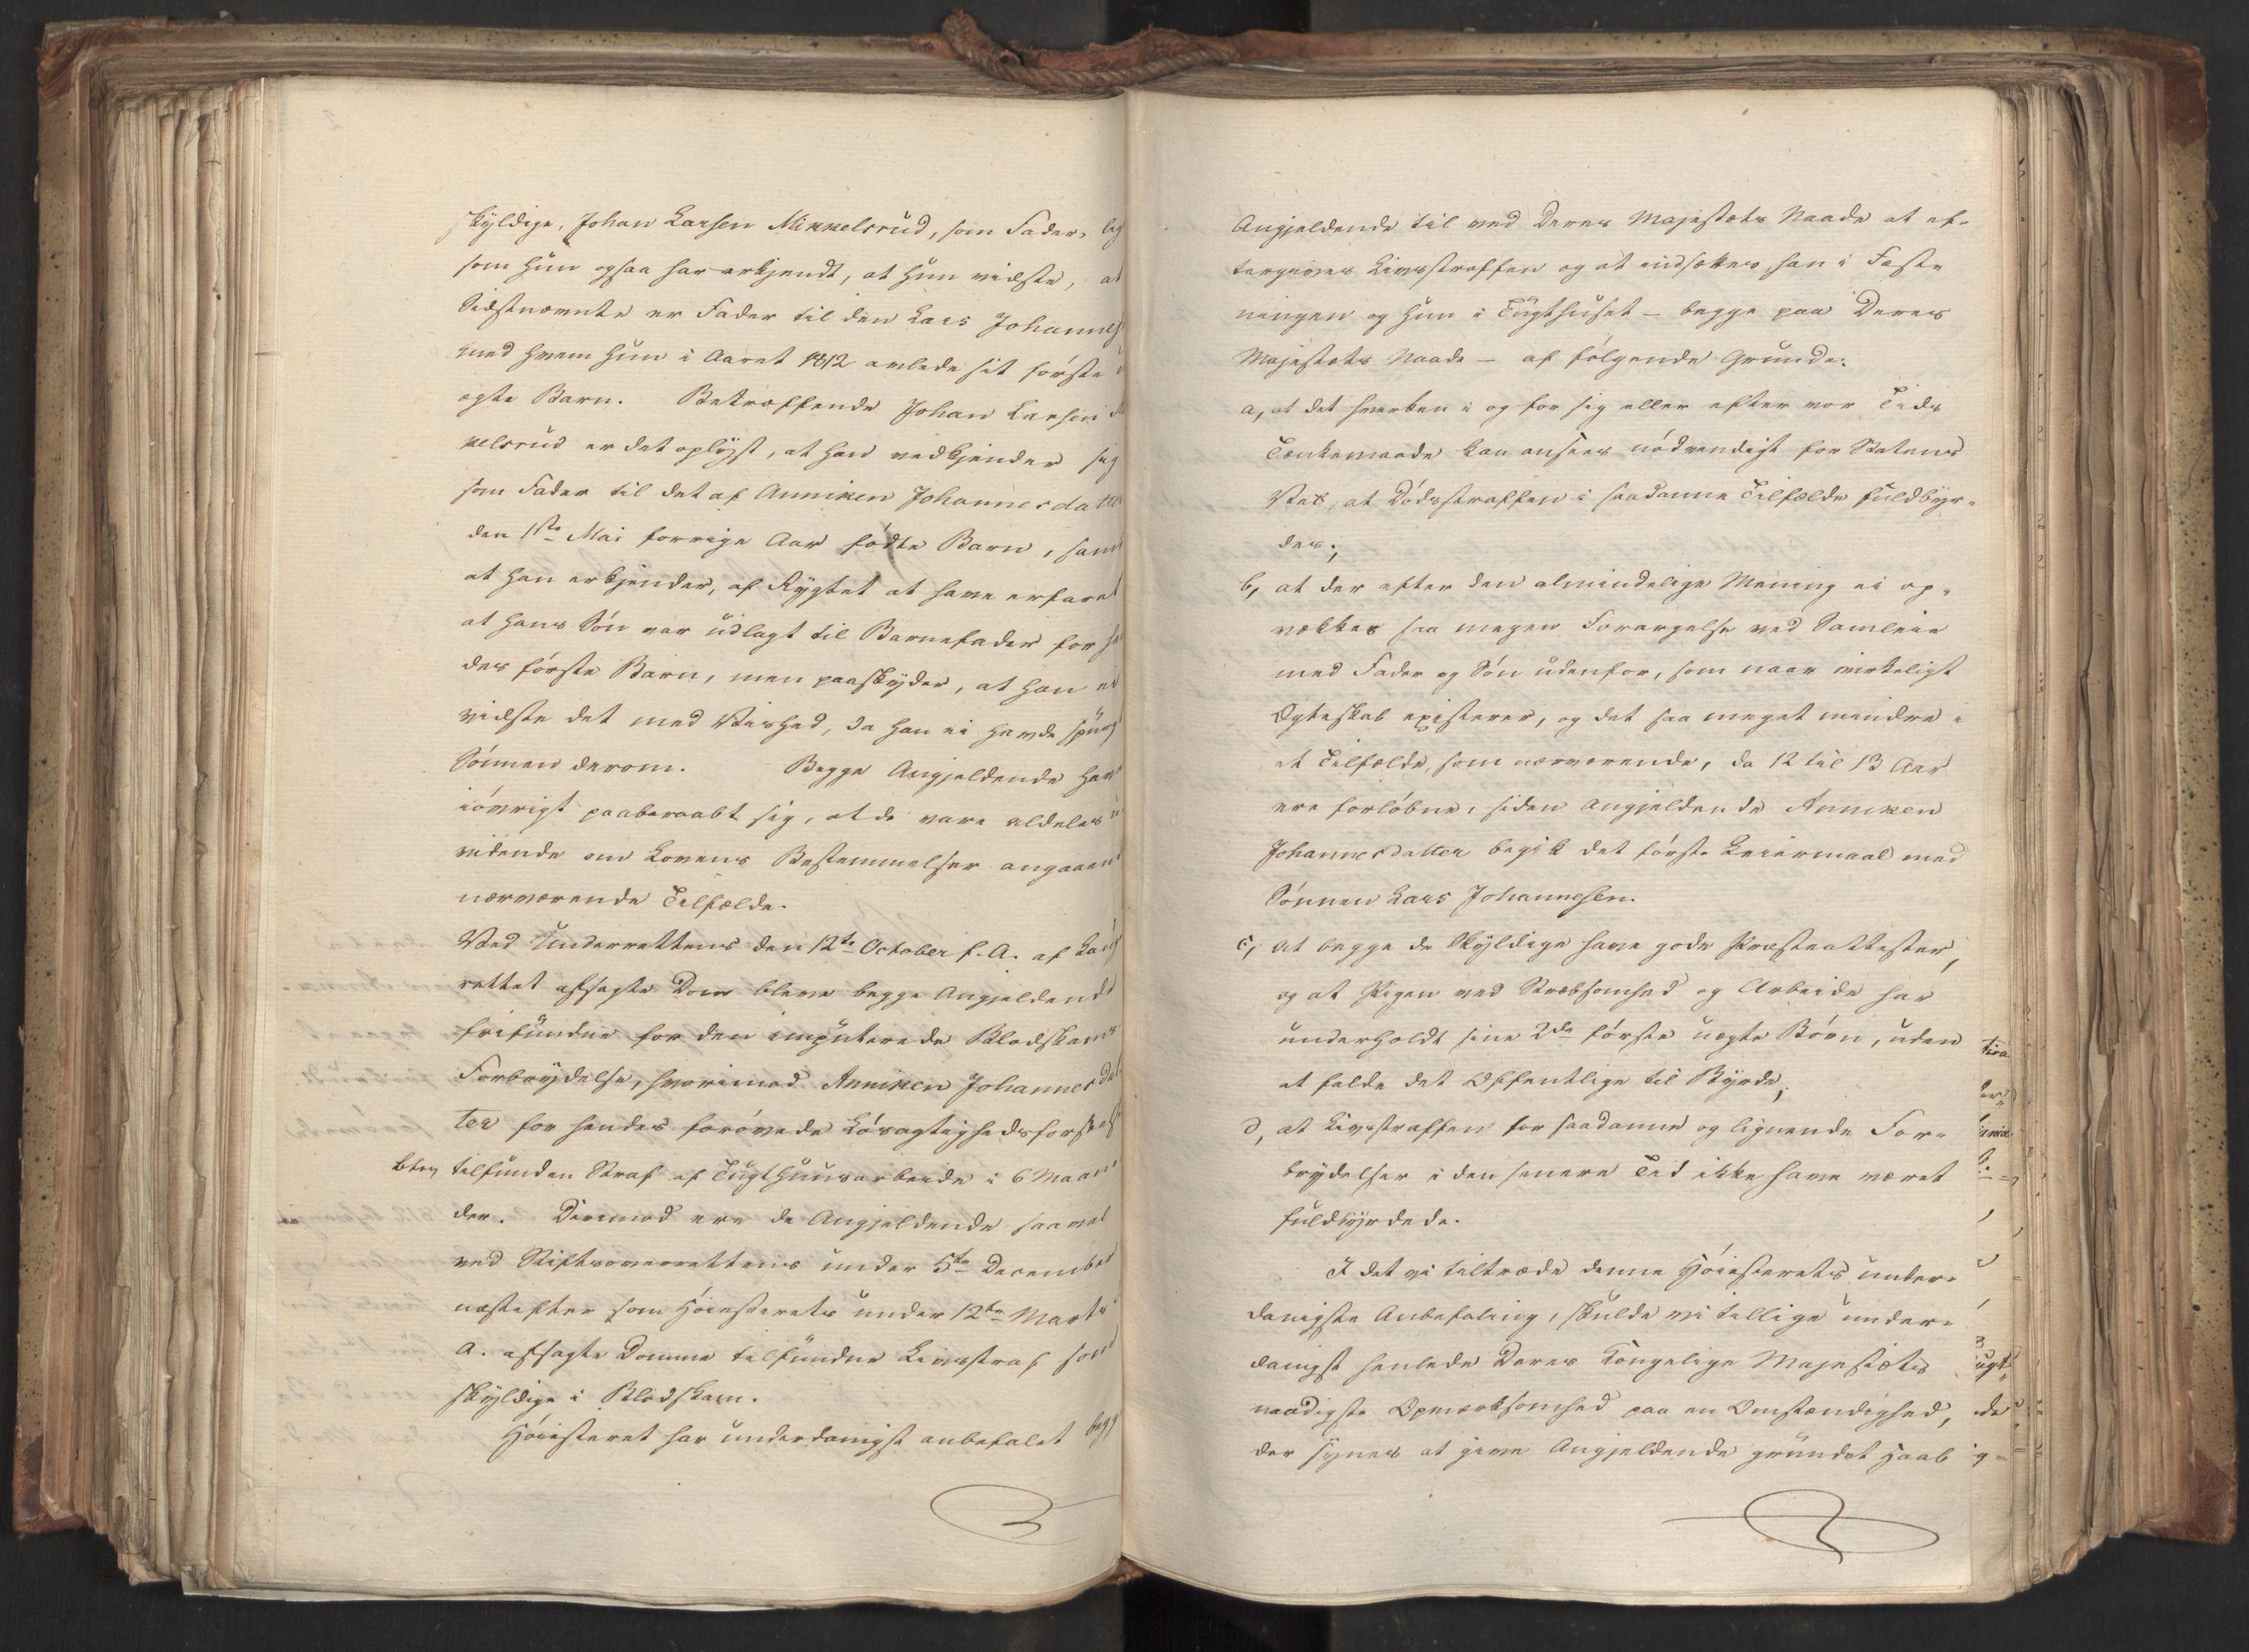 skyldige, Johan Larsen Mikkelsrud, som Fader, lig
som hun ogsaa har erkjendt, at hun vidste, at
Sidstnævnte er Fader til den Lars Johannes
med hvem hun i Aaret 1812 avlede sit første u
ægte Barn. Betræffende Johan Larsen Mi
kelsrud er det oplyst, at han vedkjender sig
som Fader til det af Anniken Johannesdatter
den 1ste Mai forrige Aar fødte Barn, samt
at han erkjender, af Rygtet at have erfaret
at hans Søn var udlagt til Barnefader for he
des første Barn, men paaskyder, at han ei
vidste det med Vished, da han ei havde spurg
Sønnen derom. Begge Angjeldende have
iøvrigt paaberaabt sig, at de vare aldeles u
vidende om Lovens Bestemmelser angaaen
nærværende Tilfælde.
Ved Underrettens den 12te October f. A. af Laug
rettet afsagte Dom bleve begge Angjeldende
frifundne for den imputerede Blodskams
Forbrydelse, hvorimod Anniken Johannesdat
ter for hendes forøvede Løsagtighedsforseelse
blev tilfunden Straf af Tugthuusarbeide i 6 Maane
der. Derimod ere de Angjeldende saavel
ved Stiftsoverrettens under 5te December
næstefter som Høiesterets under 12te Marts
A. afsagte Domme tilfundne Livsstraf som
skyldige i Blodskam.
Høiesteret har underdanigst anbefalet begge
Angjeldende til ved Deres Majestæts Naade at ef-
tergives Livsstraffen og at indsættes han i Fæst-
ningen og hun i Tugthuset – begge paa Deres
Majestæts Naade – af følgende Grunde:
a, at det hverken i og for sig eller efter vor Tids
Tænkemaade kan ansees nødvendigt for Statens
Vel, at Dødsstraffen i saadanne Tilfælde fuldbyr-
des;
b, at der efter den almindelige Mening ei op-
vækkes saa megen Forargelse ved Samleie
med Fader og Søn udenfor, som naar virkeligt
Ægteskab existerer, og det saa meget mindre i
et Tilfælde, som nærværende, da 12 til 13 Aar
ere forløbne, siden Angjeldende Anniken
Johannesdatter begik det første Leiermaal med
Sønnen Lars Johannesen.
c, at begge de Skyldige have gode Præsteattester,
og at Pigen ved Stræbsomhed og Arbeide har
underholdt sine 2de første uægte Børn, uden
at falde det Offentlige til Byrde;
d, at Livsstraffen for saadanne og lignende For-
brydelser i den senere Tid ikke have været
fuldbyrdede.
I det vi tiltræde denne Høiesterets under-
danigste Anbefaling, skulde vi tillige under-
danigst henlede Deres Kongelige Majestæts
naadigste Opmærksomhed paa en Omstændighed,
der synes at give Angjeldende grundet Haab